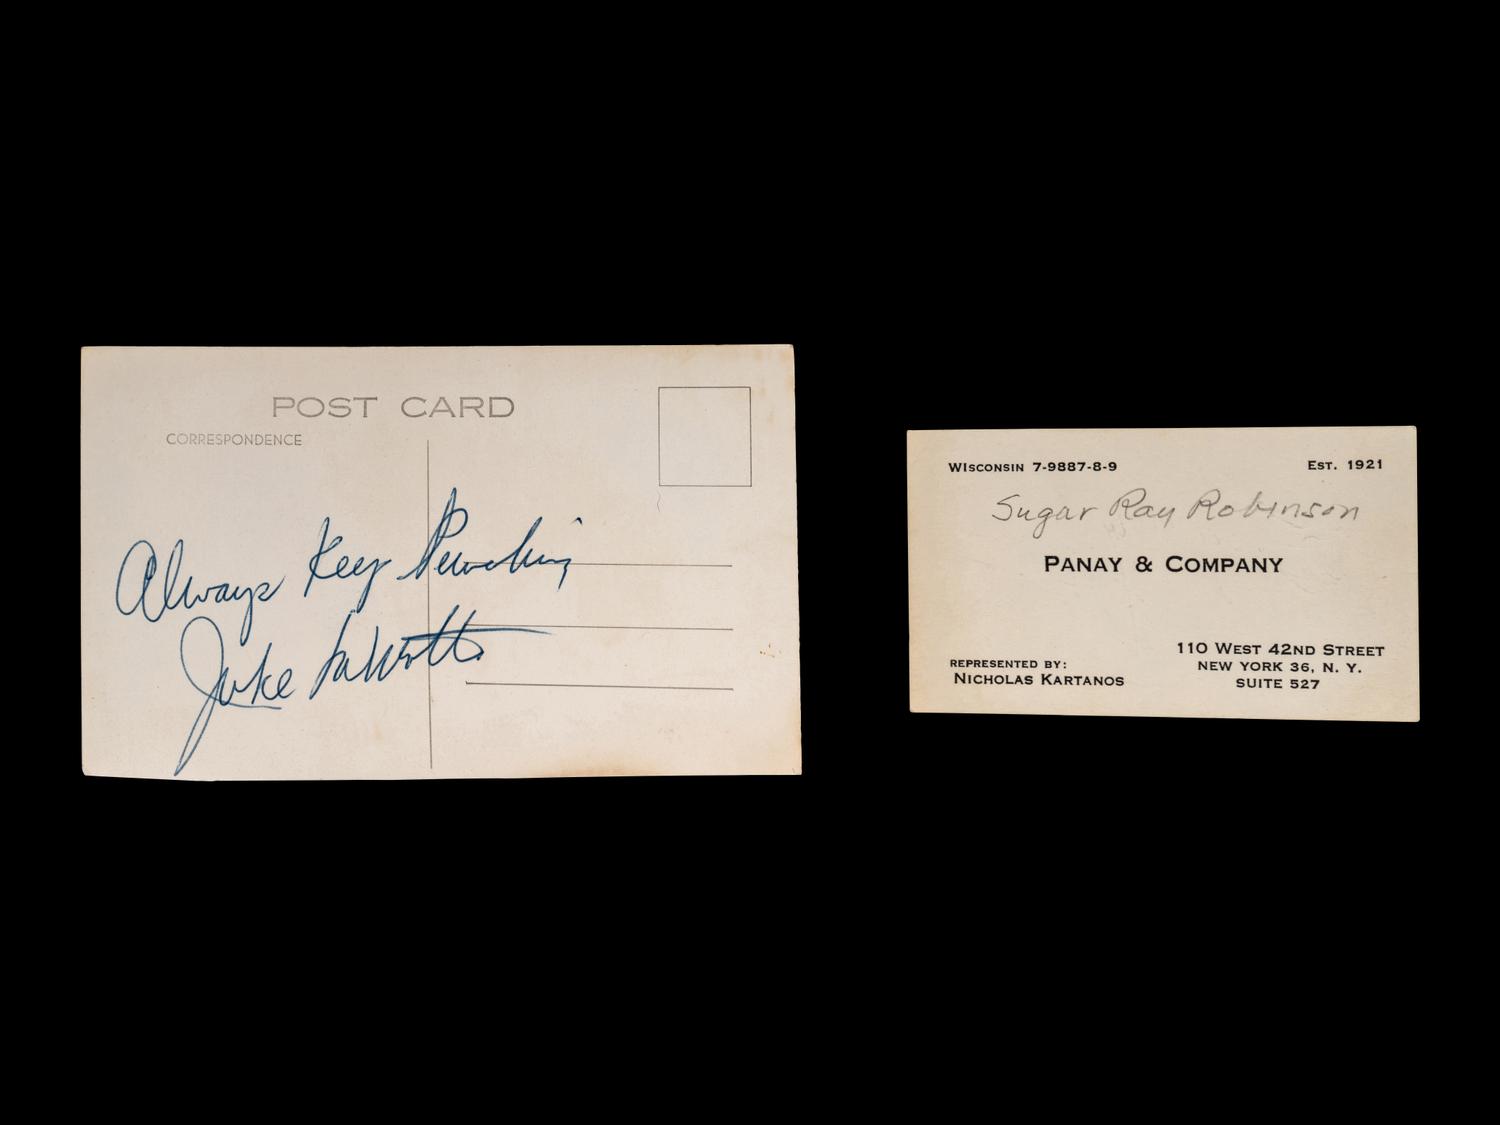 POST CARD
CORRESPONDENCE
Always Keep Punching
Jake LaMotta
WISCONSIN 7-9887-8-9
EST. 1921
Sugar Ray Robinson
PANAY & COMPANY
REPRESENTED BY:
NICHOLAS KARTANOS
110 WEST 42ND STREET
NEW YORK 36, N. Y.
SUITE 527